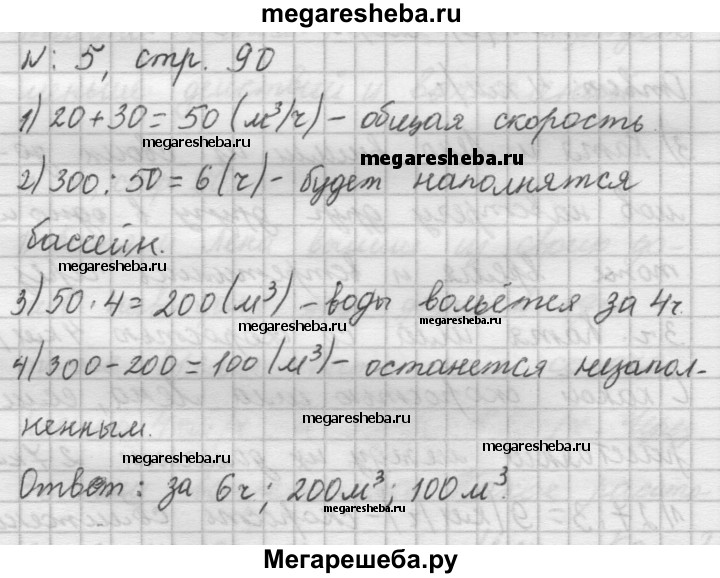 megaresheba.ru
№: 5, стр. 90
1) 20+30=50 (м³/ч) – общая скорость
megaresheba.ru
megaresheba.ru
2) 300:50=6 (ч) – будет наполнятся
бассейн.
megaresheba.ru
3) 50·4=200 (м³) – воды вольётся за 4ч.
megaresheba.ru megaresheba.ru
4) 300-200=100 (м³) – останется незапол-
megaresheba.ru
ненным.
megaresheba.ru megaresheba.ru
Ответ: за 6ч; 200м³; 100м³.
Мегарешеба.ру